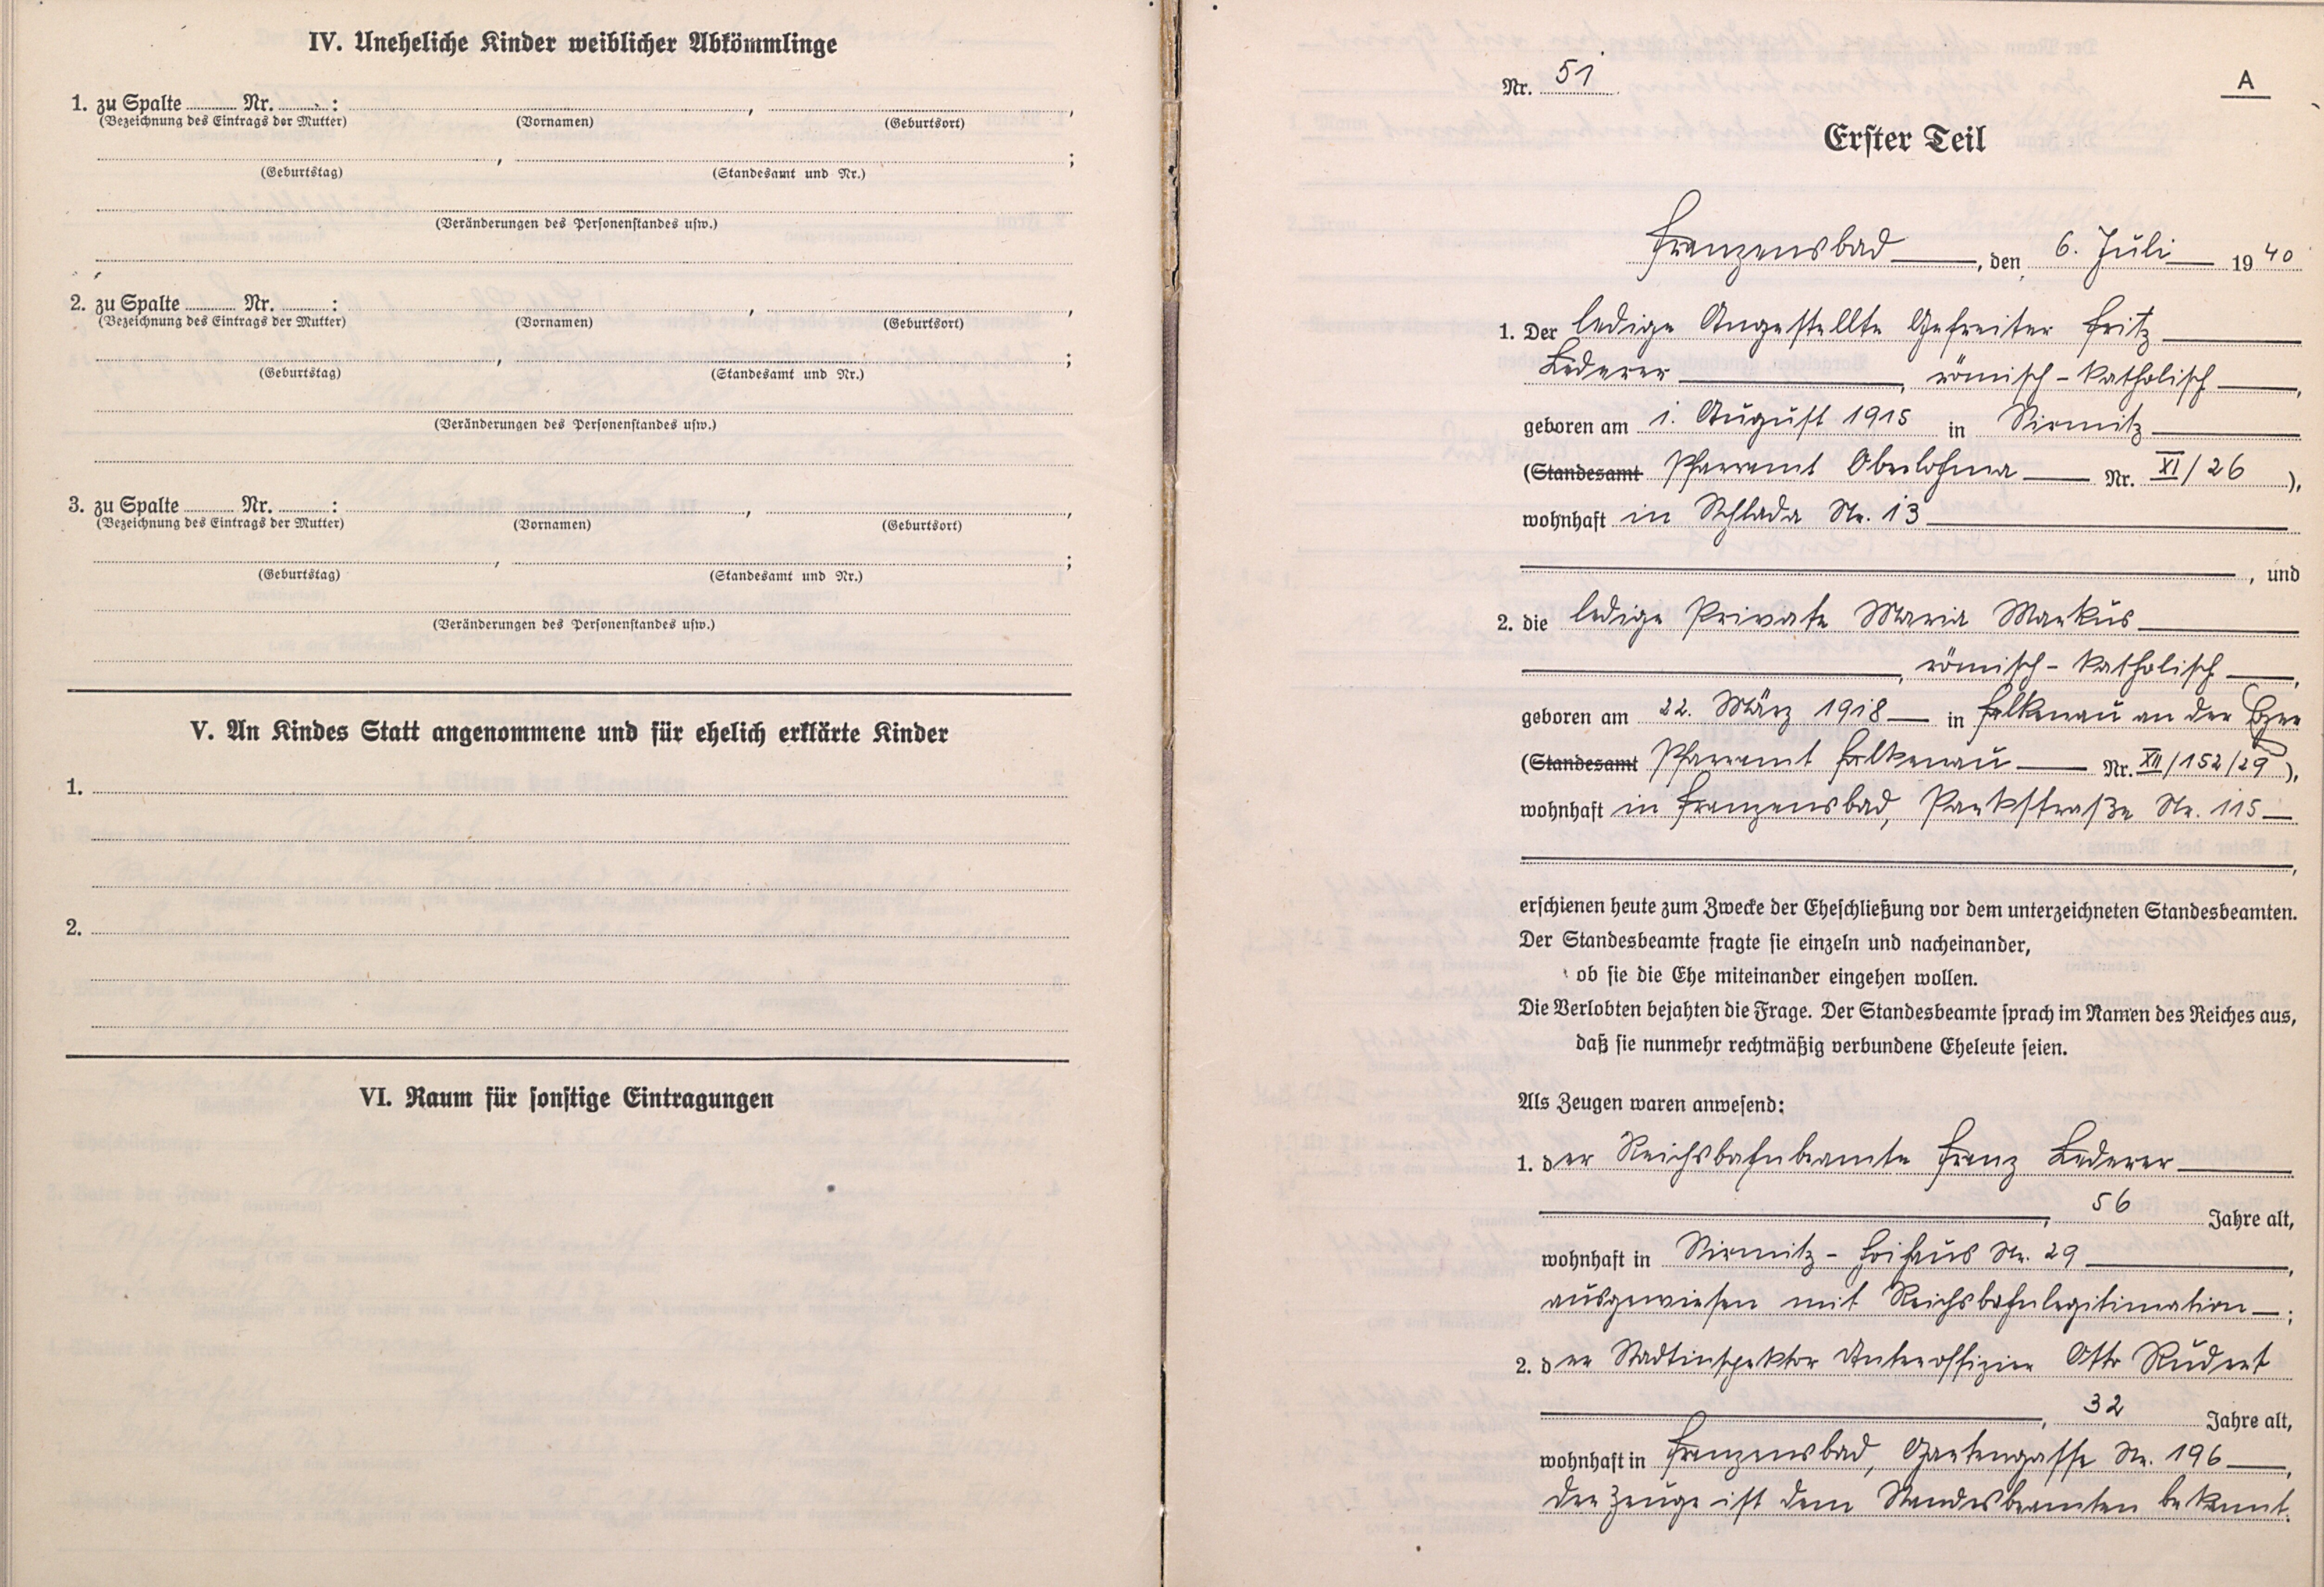 IV. Uneheliche Kinder weiblicher Abkömmlinge
1. zu Spalte ........ Nr. ........ : ,  ,
(Bezeichnung des Eintrags der Mutter) (Vornamen) (Geburtsort)
, ;
(Geburtstag) (Standesamt und Nr.)
(Veränderungen des Personenstandes usw.)
2. zu Spalte ........ Nr. ........ : ,  ,
(Bezeichnung des Eintrags der Mutter) (Vornamen) (Geburtsort)
, ;
(Geburtstag) (Standesamt und Nr.)
(Veränderungen des Personenstandes usw.)
3. zu Spalte ........ Nr. ........ : ,  ,
(Bezeichnung des Eintrags der Mutter) (Vornamen) (Geburtsort)
, ;
(Geburtstag) (Standesamt und Nr.)
(Veränderungen des Personenstandes usw.)
V. An Kindes Statt angenommene und für ehelich erklärte Kinder
1.
2.
VI. Raum für sonstige Eintragungen
Nr. 51
A
Erster Teil
Franzensbad, den 6. Juli 1940
1. Der ledige Angestellte Gefreiter Fritz
Lederer, römisch-katholisch,
geboren am 1. August 1915 in Sirmitz
(Standesamt Pfarramt Oberlohma Nr. XI/26),
wohnhaft in Schlada Nr. 13
, und
2. die ledige Private Maria Markus
, römisch-katholisch,
geboren am 22. März 1918 in Falkenau an der Eger
(Standesamt Pfarramt Falkenau Nr. XII/152/29),
wohnhaft in Franzensbad, Parkstraße Nr. 115
,
erschienen heute zum Zwecke der Eheschließung vor dem unterzeichneten Standesbeamten.
Der Standesbeamte fragte sie einzeln und nacheinander,
ob sie die Ehe miteinander eingehen wollen.
Die Verlobten bejahten die Frage. Der Standesbeamte sprach im Namen des Reiches aus,
daß sie nunmehr rechtmäßig verbundene Eheleute seien.
Als Zeugen waren anwesend:
1. der Reichsbahnbeamte Franz Lederer
, 56 Jahre alt,
wohnhaft in Sirmitz - Hoihäus Nr. 29,
ausgewiesen mit Reichsbahnlegitimation;
2. der Stadtinspektor Unteroffizier Otto Rudert
, 32 Jahre alt,
wohnhaft in Franzensbad, Gartengasse Nr. 196,
der Zeuge ist dem Standesbeamten bekannt.